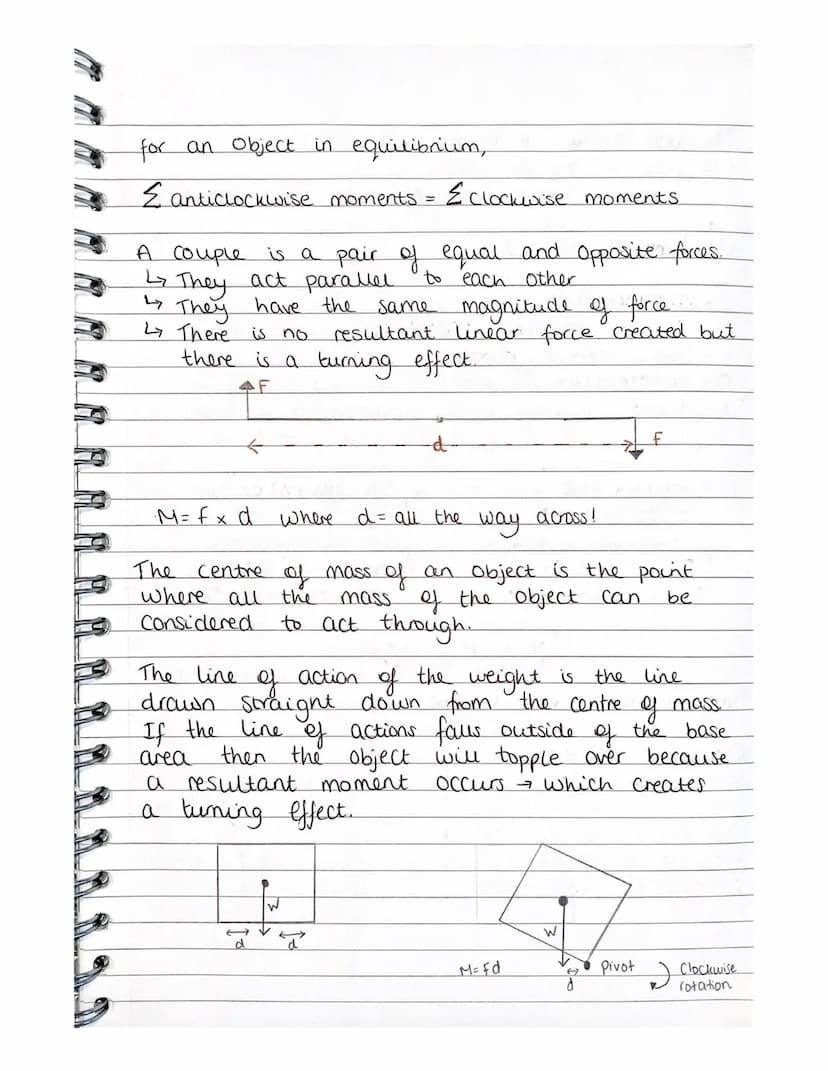 for an Object in equilibrium,
Σ anticlockwise moments = Σ clockwise moments
A couple is a pair of equal and opposite forces.
↳ They act parallel to each other
↳ They have the same magnitude of force
↳ There is no resultant linear force created but
there is a turning effect.
F
d
F
M = f x d where d = all the way across!
The centre of mass of an object is the point
where all the mass of the object can be
considered to act through.
The line of action of the weight is the line
drawn straight down from the centre of mass
If the line of actions falls outside of the base
area then the object will topple over because
a resultant moment occurs → which creates
a turning effect.
W
d d
W
M = Fd
d
Pivot
Clockwise
rotation